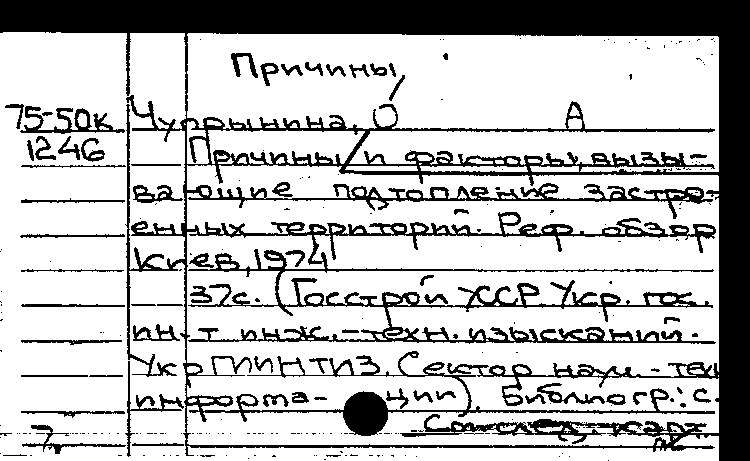 Причины
75-50к Чупрынина, О А
1246 Причины и факторы, вызы-
вающие подтопление застро-
енных территорий. Реф. обзор
Киев, 1974
37с. (Госстрой УССР. Укр. гос.
ин-т инж.-техн. изысканий.
УкрГИИНТИЗ. Сектор науч.-техн
информа- ции). Библиогр.: с.
См. след. карт.